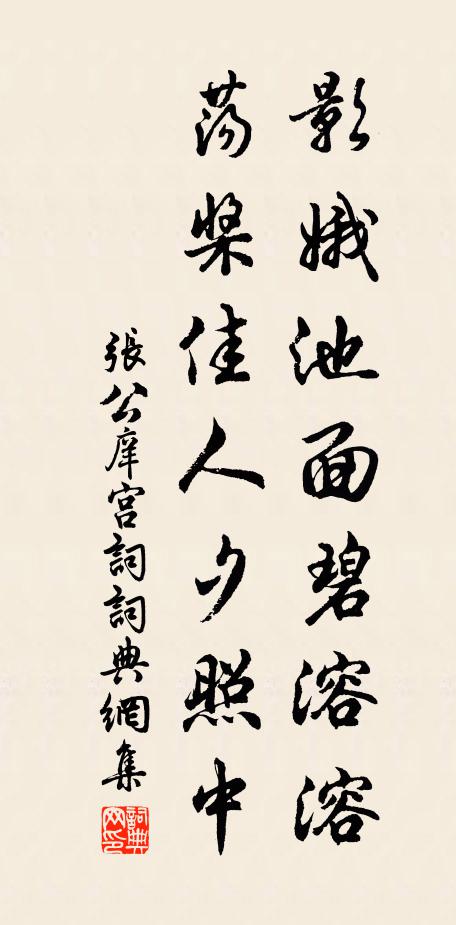 影娥池面碧溶溶
荡桨佳人夕照中
張公庠宫詞詞典網集
詞典网印